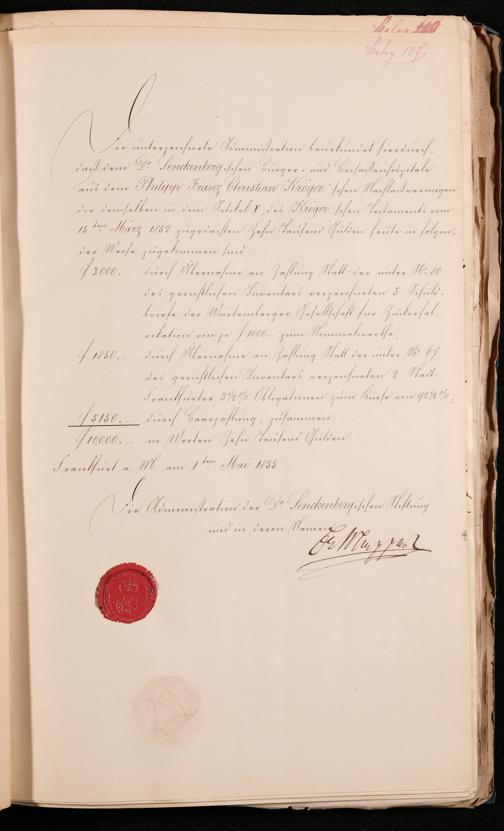 Beleg
Beleg 107
Die unterzeichnete Administration beurkundet hierdurch,
daß dem Dr. Senckenberg'ischen Bürger- und Beisassenhospitale
aus dem Philipp Franz Christian Kröger'schen Nachlaßvermögen
die demselben in dem Artikel V des Kröger'schen Testaments vom
15ten März 1852 zugedachten Zehn Tausend Gulden heute in folgen-
der Weise zugekommen sind:
f 3000.– durch Übernahme an Zahlung Statt der unter No. 80
des gerichtlichen Inventars verzeichneten 3 Schuld-
briefe der Würtemberger Gesellschaft für Zuckerfab-
rikation von je f 1000.– zum Nominalwerthe,
f 1850.– durch Übernahme an Zahlung Statt der unter No. 67
des gerichtlichen Inventars verzeichneten 2 Stadt
Frankfurter 3½% Obligationen zum Kurse von 92½%;
f 5150.– durch Baarzahlung, zusammen
f 10,000.– in Worten Zehn Tausend Gulden.
Frankfurt a. M. am 1ten Mai 1855
Die Administration der Dr. Senckenberg'ischen Stiftung
und in deren Namen
Dr.